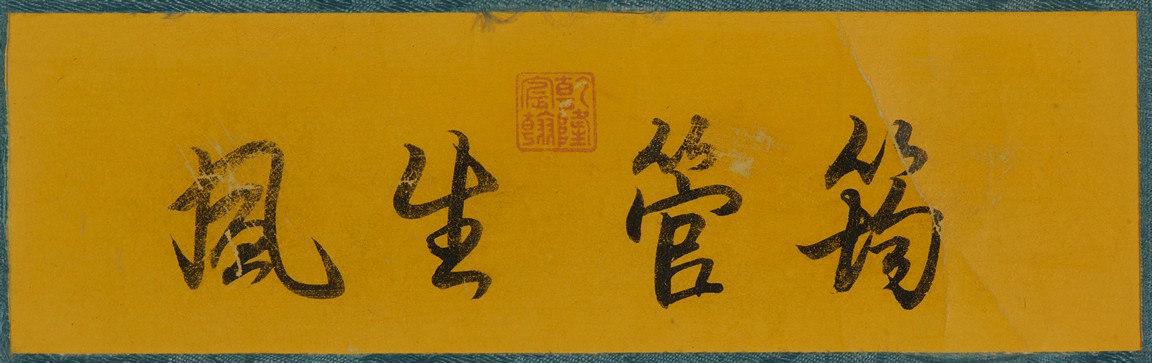 筠管生風
乾隆宸翰